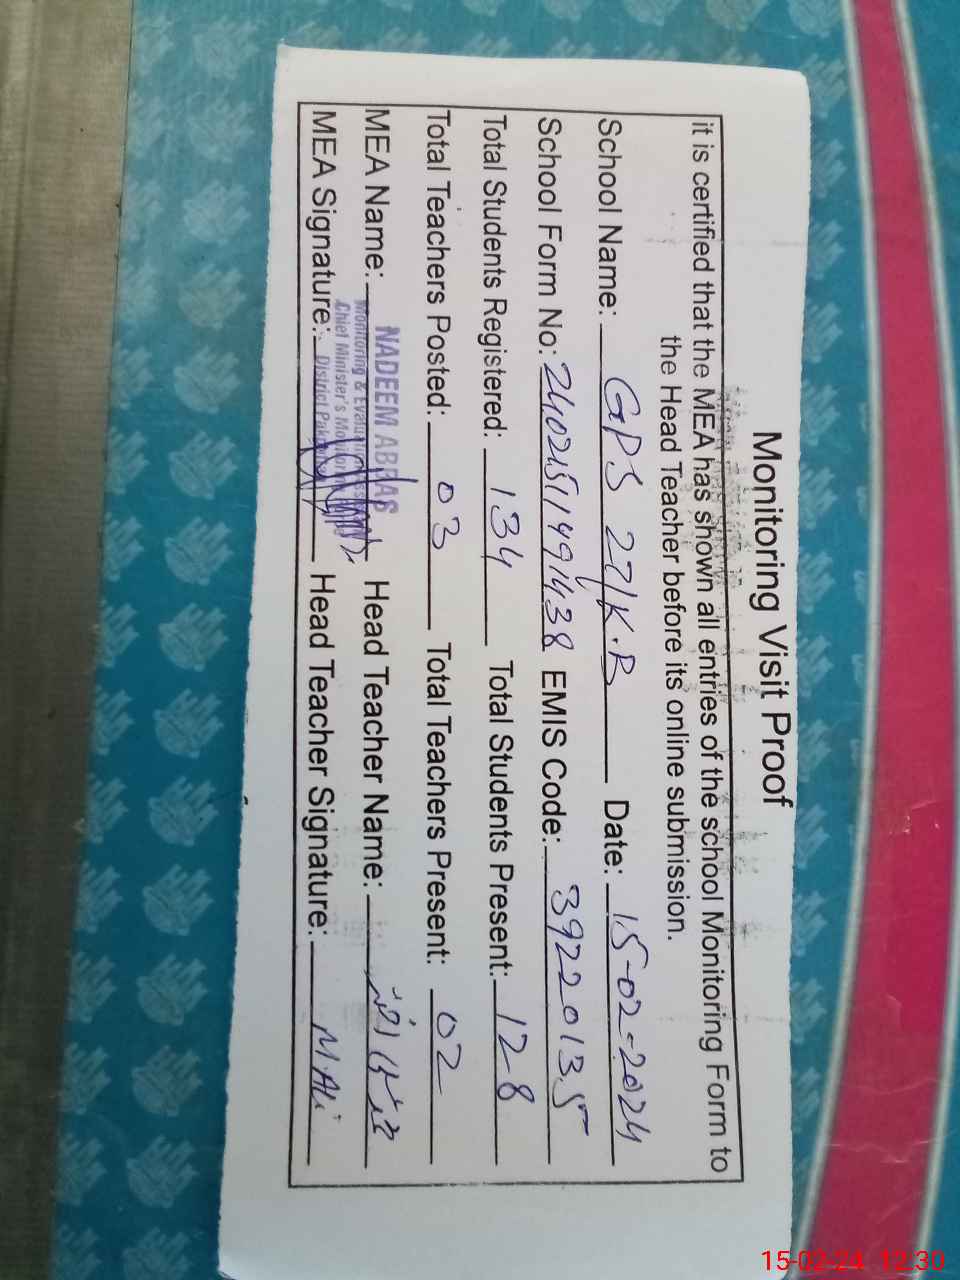 Monitoring Visit Proof
it is certified that the MEA has shown all entries of the school Monitoring Form to
the Head Teacher before its online submission.
School Name: GPS 27/K.B Date: 15-02-2024
School Form No: 2402151149 1438 EMIS Code: 39220135
Total Students Registered: 134 Total Students Present: 128
Total Teachers Posted: 03 Total Teachers Present: 02
MEA Name: NADEEM ABBAS Head Teacher Name:
Monitoring & Evaluation
Chief Minister's Monitoring
MEA Signature: District Head Teacher Signature: M.Ali
15-02-24 12:30